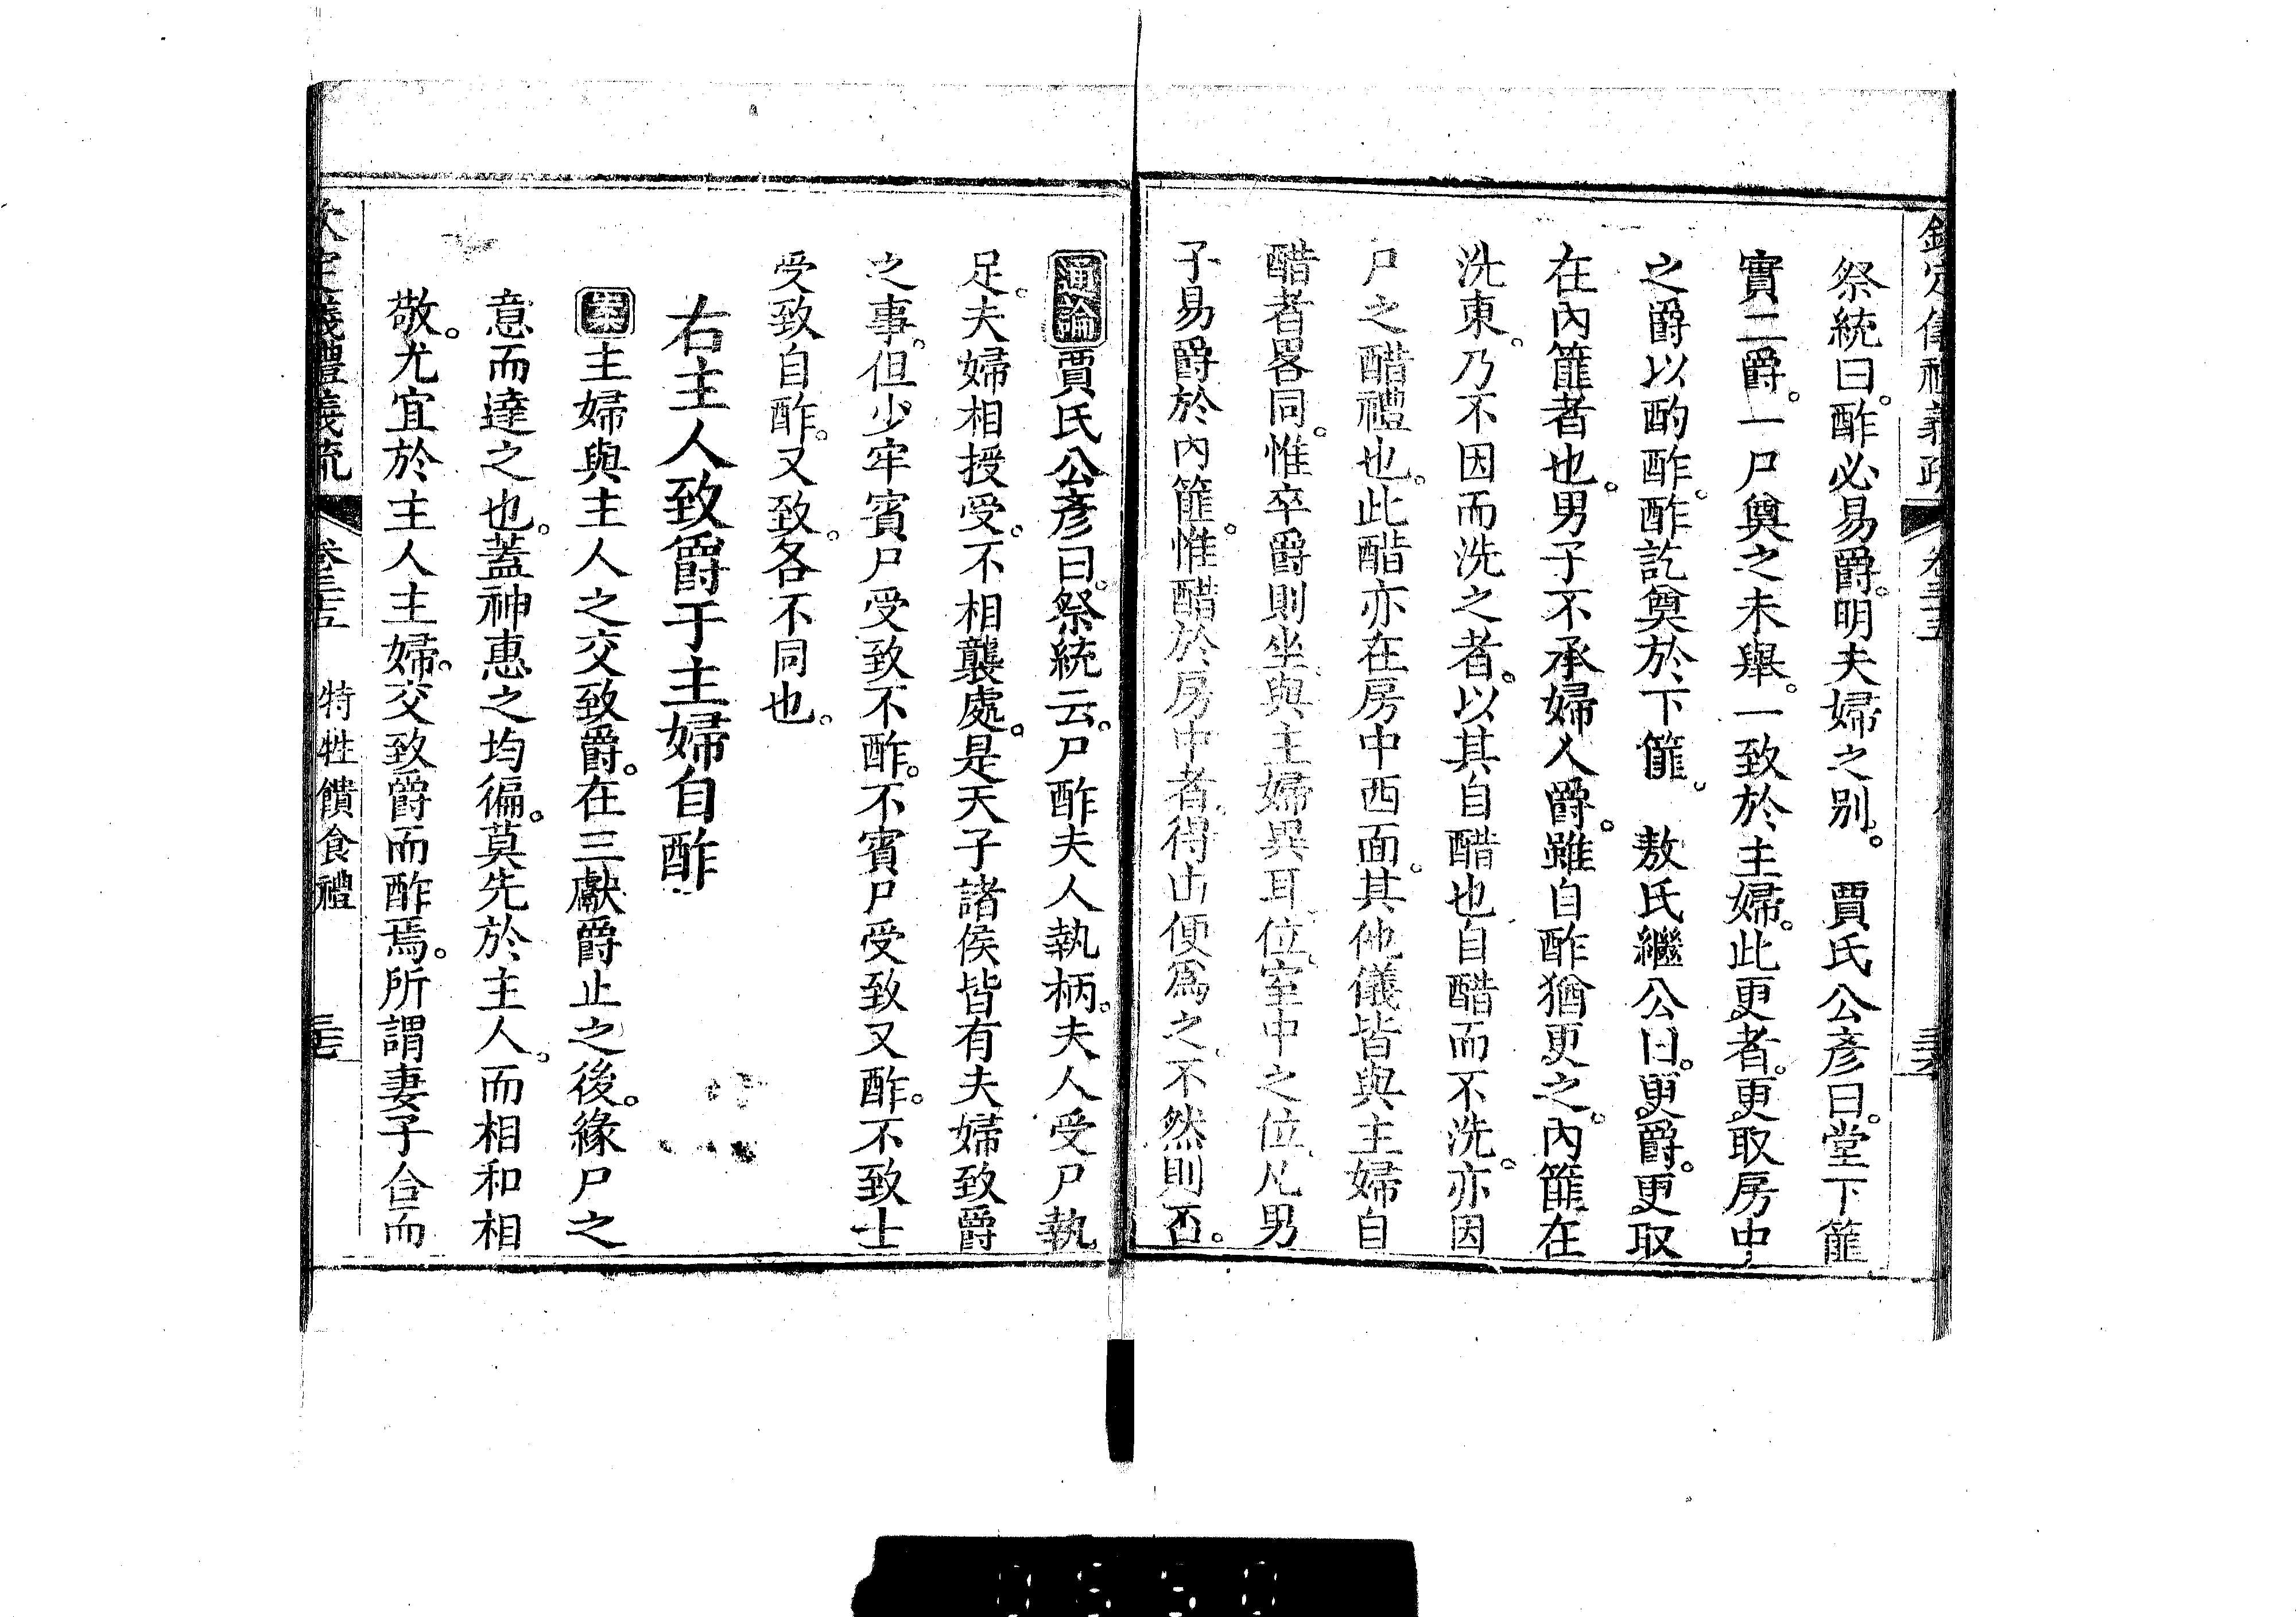 欽定儀禮義疏 卷三十五 三十六
祭統曰。酢必易爵。明夫婦之别。 賈氏公彥曰。堂下篚
實二爵。一尸奠之未舉。一致於主婦。此更者。更取房中
之爵以酌酢。酢訖奠於下篚。 敖氏繼公曰。更爵。更取
在內篚者也。男子不承婦人爵。雖自酢猶更之。內篚在
洗東。乃不因而洗之者。以其自醋也。自醋而不洗。亦因
尸之醋禮也。此醋亦在房中西面。其他儀皆與主婦自
醋者畧同。惟卒爵則坐。與主婦異耳。位。室中之位。凡男
子易爵於內篚。惟醋於房中者。得由便爲之。不然則否。
通論賈氏公彥曰。祭統云。尸酢夫人執柄。夫人受尸執
足。夫婦相授受。不相襲處。是天子諸侯皆有夫婦致爵
之事。但少牢賓尸受致不酢。不賓尸受致又酢。不致士
受致自酢。又致。各不同也。
右主人致爵于主婦自酢
案主婦與主人之交致爵。在三獻爵止之後。緣尸之
意而達之也。蓋神惠之均徧。莫先於主人。而相和相
敬。尤宜於主人主婦。交致爵而酢焉。所謂妻子合而
欽定儀禮義疏 卷三十五 特牲饋食禮 三十七